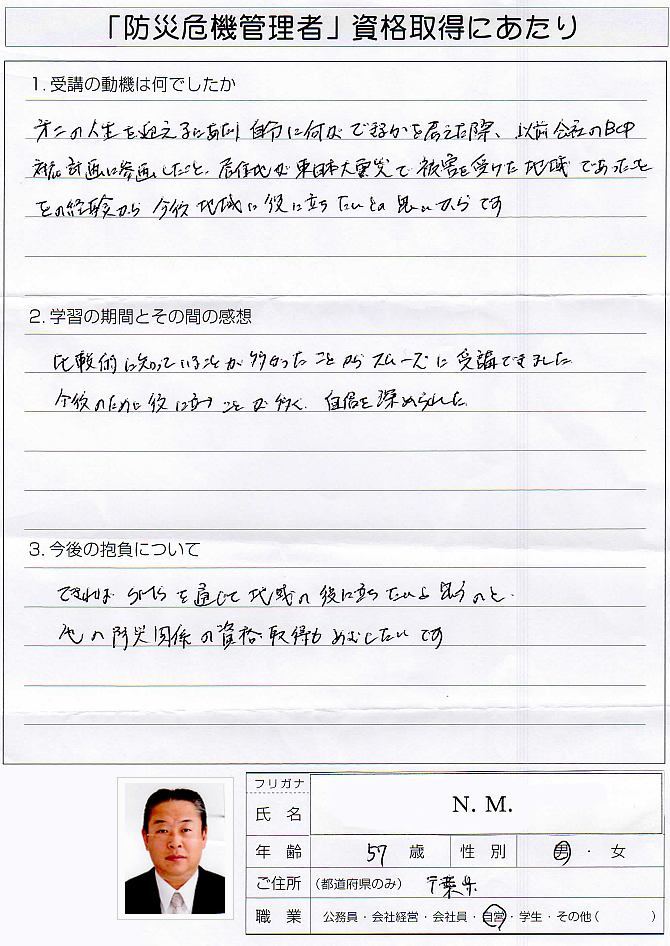 「防災危機管理者」資格取得にあたり
1. 受講の動機は何でしたか
第二の人生を迎えるにあたり自分に何ができるかを考えた際、以前会社のBCP
対応計画に参画したこと、居住地が東日本大震災で被害を受けた地域であったこと
その経験から今後地域に役に立ちたいとの思いからです
2. 学習の期間とその間の感想
比較的に知っていることが多かったことからスムーズに受講できました
今後のために役に立つことが多く、自信を深められた
3. 今後の抱負について
できれば SNSを通じて地域の役に立ちたいと思うのと、
他の防災関係の資格取得もめざしたいです
フリガナ
氏 名 N. M.
年 齢 57 歳 性 別 男 ・ 女
ご住所 (都道府県のみ) 千葉県
職 業 公務員・会社経営・会社員・自営・学生・その他( )